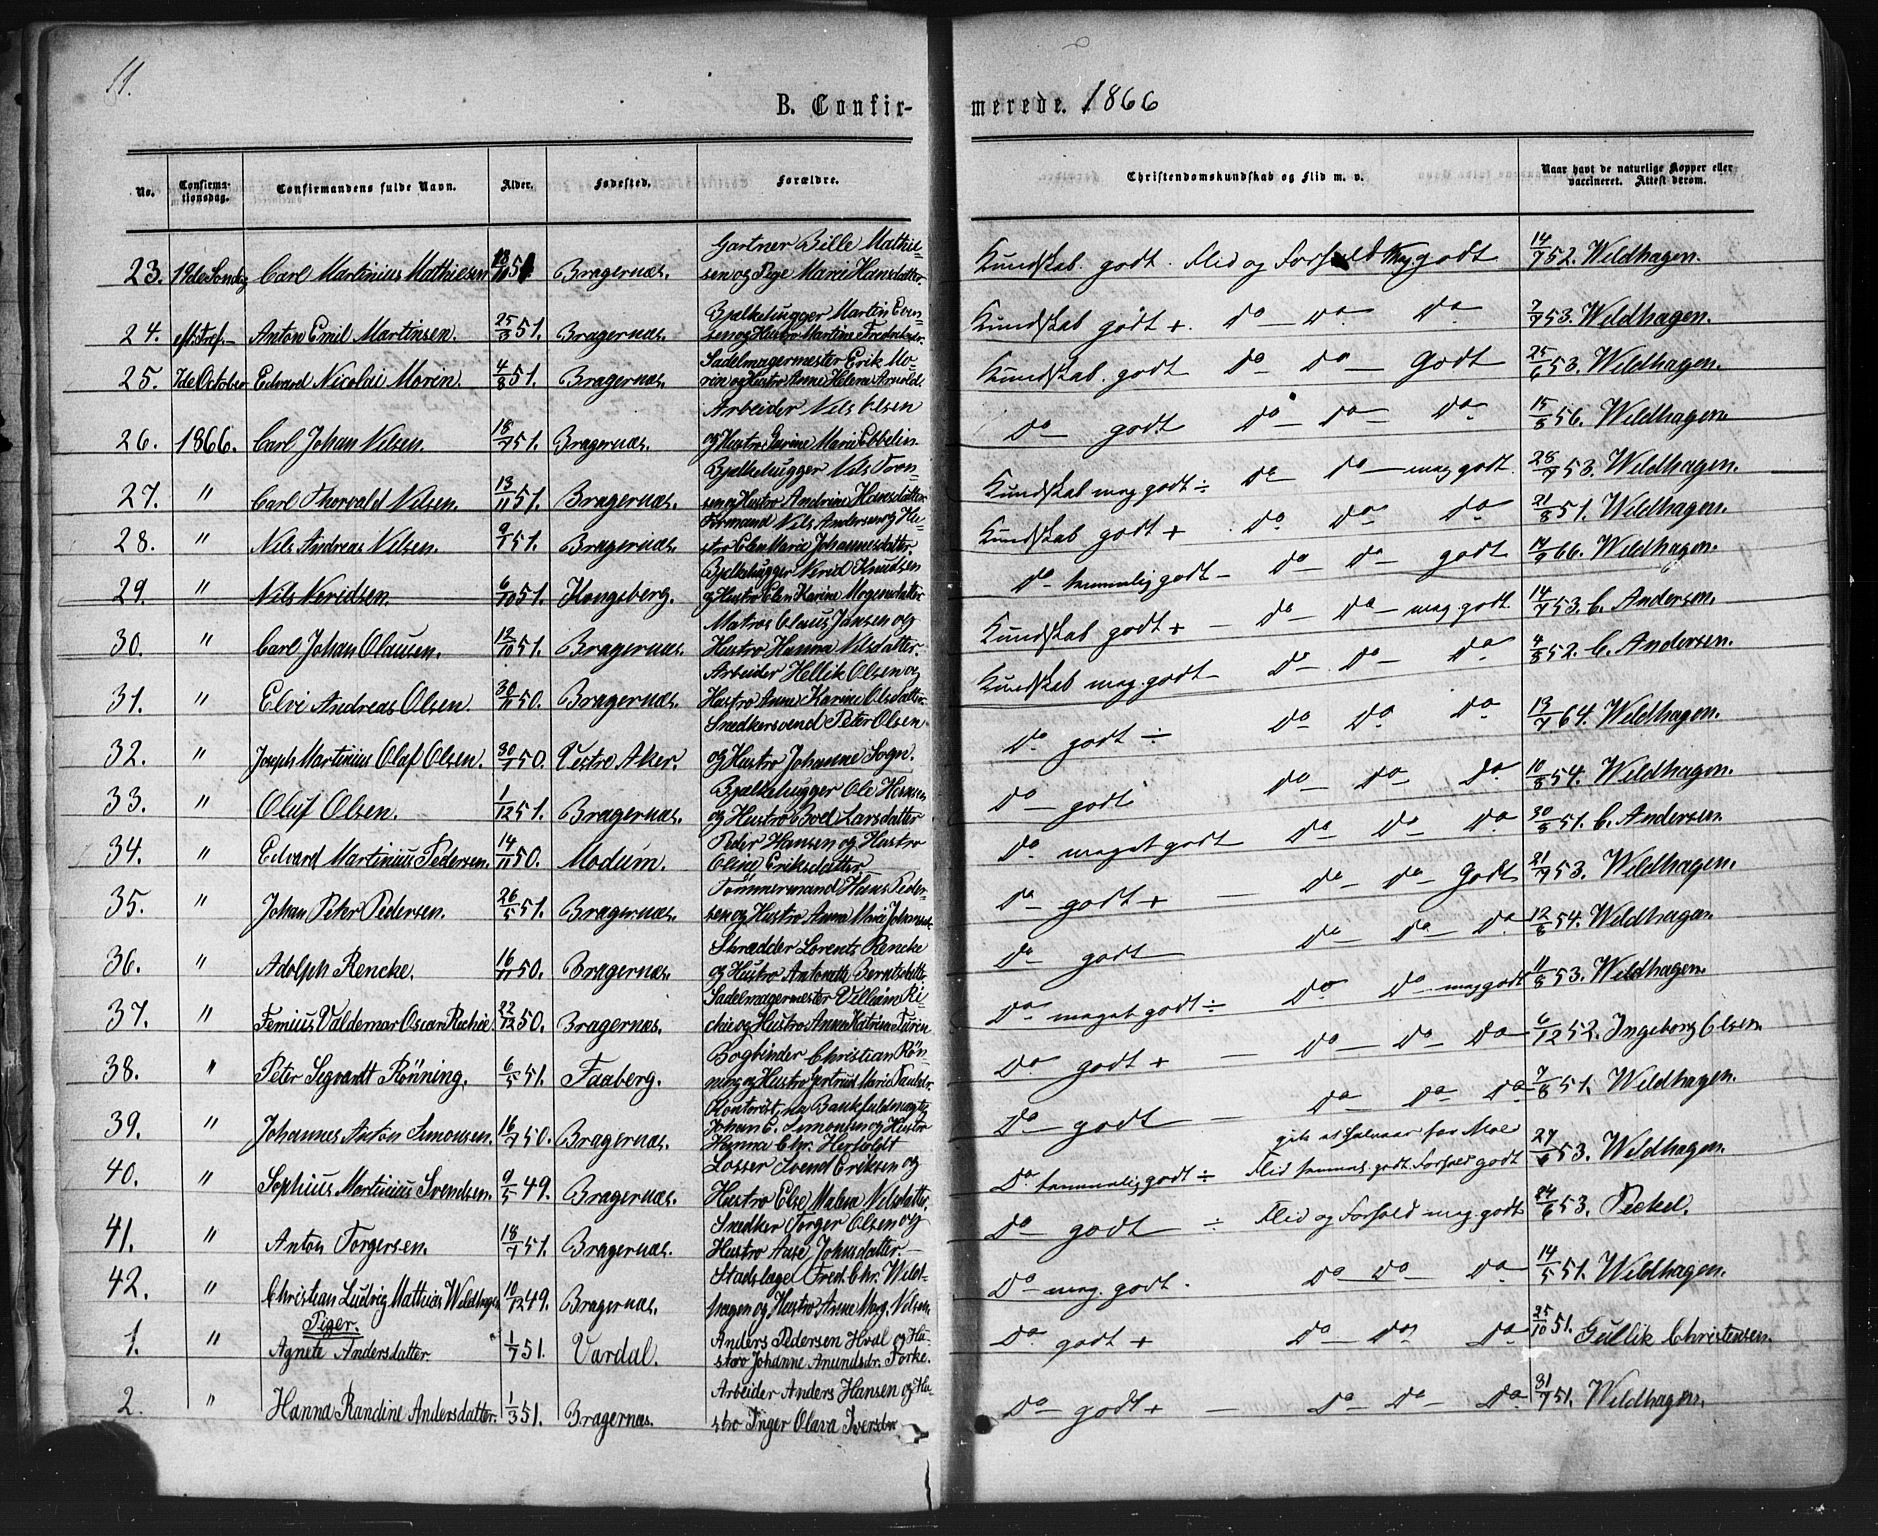 11.
B. Confir- merede. 1866
No. Confirma-tionsdag. Confirmandens fulde Navn. Alder. Fødested. Forældre. Christendomskundskab og Flid m. v. Naar havt de naturlige Kopper eller vaccineret. Attest derom.
Gartner Bille Mathie-
23. 19de Søndag Carl Martinius Mathiesen 51 Bragernæs. sen og Pige Marie Hansdatter. Kundskab godt. Flid og Forhold meg. godt 14/7 52. Wildhagen.
Bjelkehugger Martin Even-
24. eft. Tref. Anton Emil Martinsen. 25/3 51. Bragernæs. sen og Hustro Martine Fredriksdr. Kundskab godt + Do Do Do 7/7 53. Wildhagen.
Sadelmagermester Erik Mo-
25. 7de October Edvard Nicolai Morin. 4/8 51. Bragernæs. rin og Hustro Anne Helene Arvolds Kundskab godt Do Do Godt 25/6 53. Wildhagen.
Arbeider Nils Olsen
26. 1866. Carl Johan Nilsen. 18/7 51. Bragernæs. og Hustro Gurine Marie Ebbelin Do godt Do Do Do 15/8 56. Wildhagen.
Bjelkehugger Nils Tron-
27. " Carl Thorvald Nilsen. 13/11 51. Bragernæs. sen og Hustro Andrine Hansdatter Kundskab meg godt ÷ Do Do meg godt. 28/7 53. Wildhagen.
Formand Nils Andersen og Hu-
28. " Nils Andreas Nilsen. 9/7 51. Bragernæs. stro Elen Marie Johannesdatter. Kundskab godt + Do Do Do 21/8 51. Wildhagen.
Bjelkehugger Nerid Knudsen
29. " Nils Neridsen. 6/10 51. Kongsberg. og Hustro Elen Karine Mogensdatter Do temmelig godt Do Do godt 14/9 66. Wildhagen.
Matros Claus Jansen og
30. " Carl Johan Olausen. 12/10 51. Bragernæs. Hustro Hanna Nilsdatter. Kundskab godt + Do Do meg godt 14/7 53. C. Andersen.
Arbeider Hellik Olsen og
31. " Elvi Andreas Olsen. 30/11 50. Bragernæs. Hustro Anne Karine Olsdatter Kundskab meg. godt Do Do Do 4/8 52. C. Andersen.
Snedkersvend Peter Olsen
32. " Joseph Martinius Olaf Olsen. 30/7 50. Vestre Aker. og Hustro Johanne Sogn. Do godt ÷ Do Do Do 13/7 64. Wildhagen.
Bjelkehugger Ole Hansen
33. " Oluf Olsen. 1/12 51. Bragernæs. og Hustro Boel Larsdatter Do godt Do Do Do 10/8 54. Wildhagen.
Peder Hansen og Hustro
34. " Edvard Martinius Pedersen. 14/11 50. Modum. Oline Eriksdatter Do meget godt Do Do Do 30/8 51. C. Andersen
Tømmermand Hans Peder-
35. " Johan Peter Pedersen. 26/5 51. Bragernæs. sen og Hustro Anne Marie Johansd. Do godt + Do Do Godt 21/9 53. Wildhagen.
Skrædder Lorentz Rencke
36. " Adolph Rencke. 16/11 50. Bragernæs. og Hustro Antonette Berntsdatter Do godt Do Do Do 12/8 54. Wildhagen.
Sadelmagermester Villiam Ri-
37. " Femius Valdemar Oscar Richie. 22/12 50. Bragernæs. chie og Hustro Anne Katrine Do meget godt ÷ Do Do meg godt 11/8 53. Wildhagen.
Bogbinder Christian Røn-
38. " Peter Segvardt Rønning. 6/5 51. Faaberg. ning og Hustro Gertrud Marie Paulsdr. Do godt + Do Do Do 6/12 52. Ingeborg Olsen.
Kontorist, nu Bankfuldmægtig
39. " Johannes Anton Simonsen. 16/7 50. Bragernæs. Johan C. Simonsen og Hustro Do godt Do Do Do 7/8 51. Wildhagen.
Hanna Chr. Herboldt
Losser Svend Eriksen og
40. " Sophus Martinius Svendsen. 9/5 49. Bragernæs. Hustro Else Malea Nilsdatter. Do temmelig godt ÷ Flid temmel. godt Forhold godt 53. Wildhagen.
Snedker Torger Olsen og
41. " Anton Torgersen. 18/7 51. Bragernæs. Hustro Anse Johnsdatter. Do godt ÷ Flid og Forhold meg godt 24/6 53. Peckel.
Stadslæge Fred. Chr. Wild-
42. " Christian Ludvig Mathias Wildhagen 10/12 49. Bragernæs. hagen og Hustro Anne Marg. Nilsen. Do meg. godt. Do Do Do 14/5 51. Wildhagen.
Piger.
1. " Agnete Andersdatter. 1/7 51. Vardal. Anders Pedersen Hval og Hu-
stro Johanne Amundsdr. Forke. Do godt + Do Do Do 25/10 51. Gullik Christensen.
Arbeider Anders Hansen og Hu-
2. " Hanna Randine Andersdatter. 1/3 51. Bragernæs. stro Inger Olava Iversdr Do godt + Do Do Do 31/7 51. Wildhagen.